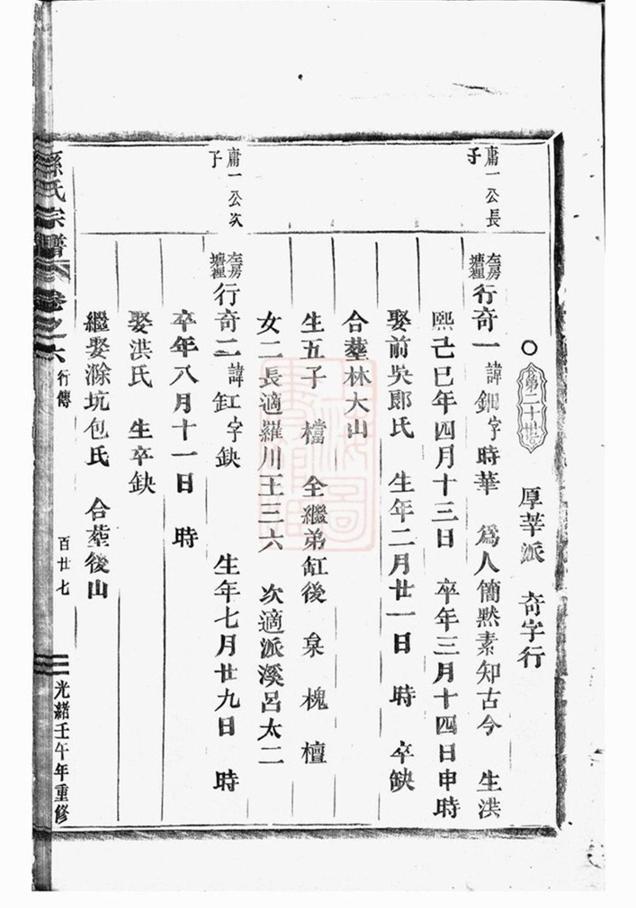 第二十世 厚莘派 奇字行
庸一公長子
左房塘裡
行奇一 諱鈿字時華 爲人簡黙素知古今 生洪
熙己巳年四月十三日 卒年三月十四日申時
娶前吳郎氏 生年二月廿一日 時 卒缺
合塟林大山
生五子 檔 全繼弟缸後 梟 槐 檀
女二長適羅川王三六 次適派溪呂太二
庸一公次子
左房塘裡
行奇二 諱缸字缺 生年七月廿九日 時
卒年八月十一日 時
娶洪氏 生卒缺
繼娶滁坑包氏 合塟後山
孫氏宗譜 卷之六 行傳 百廿七 光緒壬午年重修